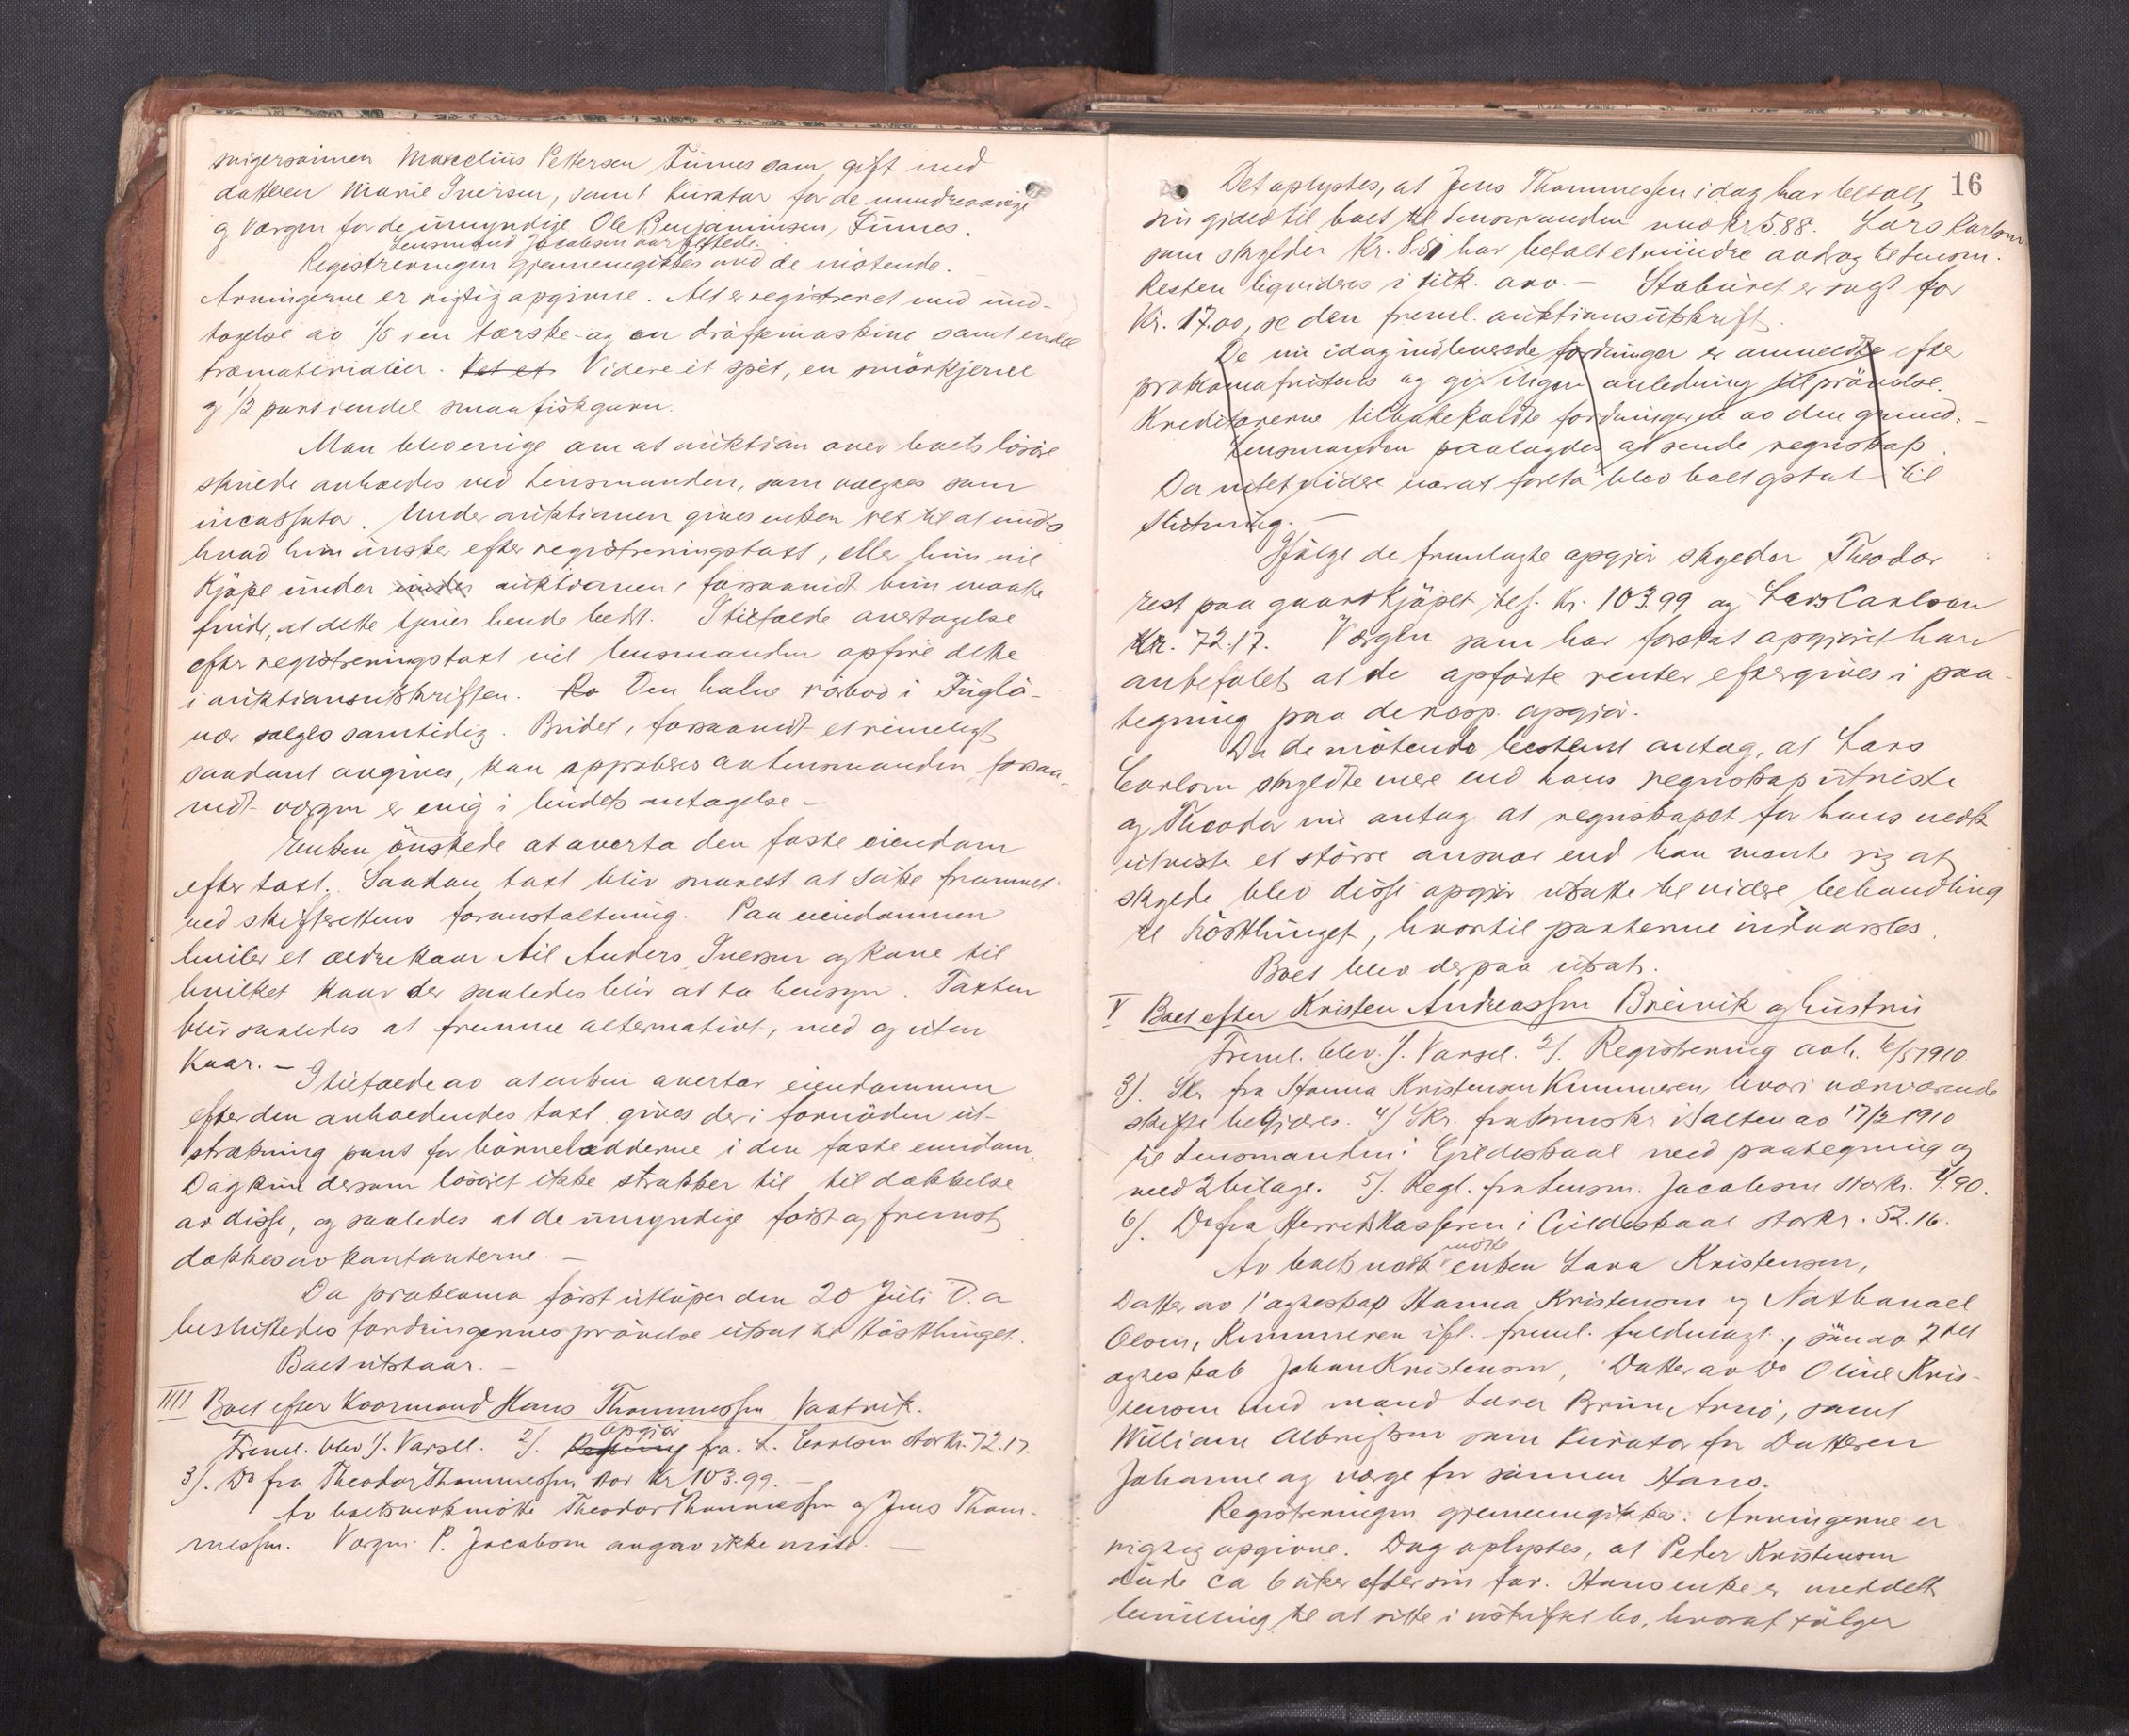 svigersønnen Marcelius Pettersen Finnes som gift med
datteren Marie Iversen, samt kurator for de mindreaarige
og værgen for de umyndige Ole Benjaminsen, Finnes.
Lensmand Jacobsen var tilstede.
Registreringen gjennemgikkes med de møtende.
Arvingerne er rigtig opgivne. Alt er registreret med und-
tagelse av 1/5 i en tærske- og en drøftemaskine samt endel
træmaterialier. Videre et spil, en smørkjerne
og 1/2 part i endel smaafiskgarn.
Man blev enige om at auktion over boets løsøre
skulde avholdes ved lensmanden, som vælges som
incassator. Under auktionen gives enken ret til at utta
hvad hun ønsker efter registreringstaxt, eller hun vil
kjøpe under under auktionen, forsaavidt hun maatte
finde, at dette tjener hende bedst. I tilfælde overtagelse
efter registreringstaxt vil lensmanden opføre dette
i auktionsutskriften. Den halve rorbod i Fuglø-
vær sælges samtidig. Budet, forsaavidt et rimeligt
saadant avgives, kan approberes av lensmanden forsaa-
vidt værgen er enig i budets antagelse.-
Enken ønskede at overta den faste eiendom
efter taxt. Saadan taxt bliv snarest at søke fremmet
ved skifterettens foranstaltning. Paa eiendommen
hviler et ældre kaar til Anders Iversen og kone til
hvilket kaar der saaledes blir at ta hensyn. Taxten
blir saaledes at fremme alternativt, med og uten
Kaar. -
I tilfælde av at enken overtar eiendommen
efter den avholdendes taxt gives der i fornøden ut-
strækning pant for børnelodderne i den faste eiendom.
Dog kun dersom løsøret ikke strækker til til dækkelse
av disse, og saaledes at de umyndige først og fremst
dækkes av kontanterne. -
Da proklama først utløper den 20 Juli D.a
besluttedes fordringernes prøvelse utsat til høstthinget.
Boet utstaar. -
IIII Boet efter Kaarmand Hans Thommessen Vaatvik.
Freml. blev 1/. Varsel. 2/. Regning opgjør fra L. Carlsen stor Kr. 72.17.
3/. Do fra Theodor Thommessen stor Kr 103.99. -
Av boets vedk møtte Theodor Thommessen og Jens Thom-
messen. Værgen P. Jacobsen angav ikke møte. -
16
Det oplystes, at Jens Thommessen idag har betalt
sin gjæld til boet til lensmanden med kr. 5.88. Lars Carlsen
som skylder Kr. 8.81 har betalt et mindre avdrag til lensm.
Resten liqvideres i tilk. arv. - Staburet er solgt for
Kr. 17.00, se den freml. auktionsutskrift.
De nu idag indleverede fordringer er anmeldte efter
proklamafristens og gir ingen anledning til prøvelse.
Kreditorerne tilbakekaldte fordringerne av den grund. -
Lensmanden paalagdes at sende regnskap.
Da intet videre var at foreta blev boet optat til
slutning. -
Ifølge de fremlagte opgjør skylder Theodor
rest paa gaardkjøpet bel. kr. 103.99 og Lars Carlsen
Kr. 72.17. Værgen som har foretat opgjøret har
anbefalet at de opførte renter eftergives i paa-
tegning paa de resp. opgjør.
Da de møtende bestemt antog, at Lars
Carlsen skyldte mere end hans regnskap utviste
og Theodor nu antog at regnskapet for hans vedk
utviste et større ansvar end han mente sig at
skylde blev disse opgjør utsatte til videre behandling
til høstthinget, hvortil parterne indvarsles.
Boet blev derpaa utsat.
V Boet efter Kristen Andreassen Breivik og hustru
Freml. blev. 1/. Varsel. 2/. Registrering avh. 6/5 1910
3/. Skr. fra Hanna Kristensen Kunneren, hvori nærværende
skifte begjæres. 4/ Skr. fra Sorensker i Salten av 17/2 1910
til Lensmanden i Gildeskaal med paategning og
med 2 bilage. 5/. Regl. fra lensm. Jacobsen stor kr. 4.90.
6/. Do fra Herredskasseren i Gildeskaal stor kr. 52.16.
Av boets vedk møtte enken Lava Kristensen,
Datter av 1' egteskap Hanna Kristensen og Nathanael
Olsen, Kunneren ifl. freml. fuldmagt, søn av 2det
egteskab Johan Kristensen, Datter av Do Oline Kris-
tensen med mand Lorer Bruun Arnø, samt
William Albrigtsen som kurator for Datteren
Johanne og værge for sønnen Hans.
Registreringen gjennemgikkes. Arvingerne er
rigtig opgivne. Dog oplystes, at Peder Kristensen
døde ca 6 uker efter sin far. Hans enke er meddelt
bevilling til at sitte i uskiftet bo, hvorav følger